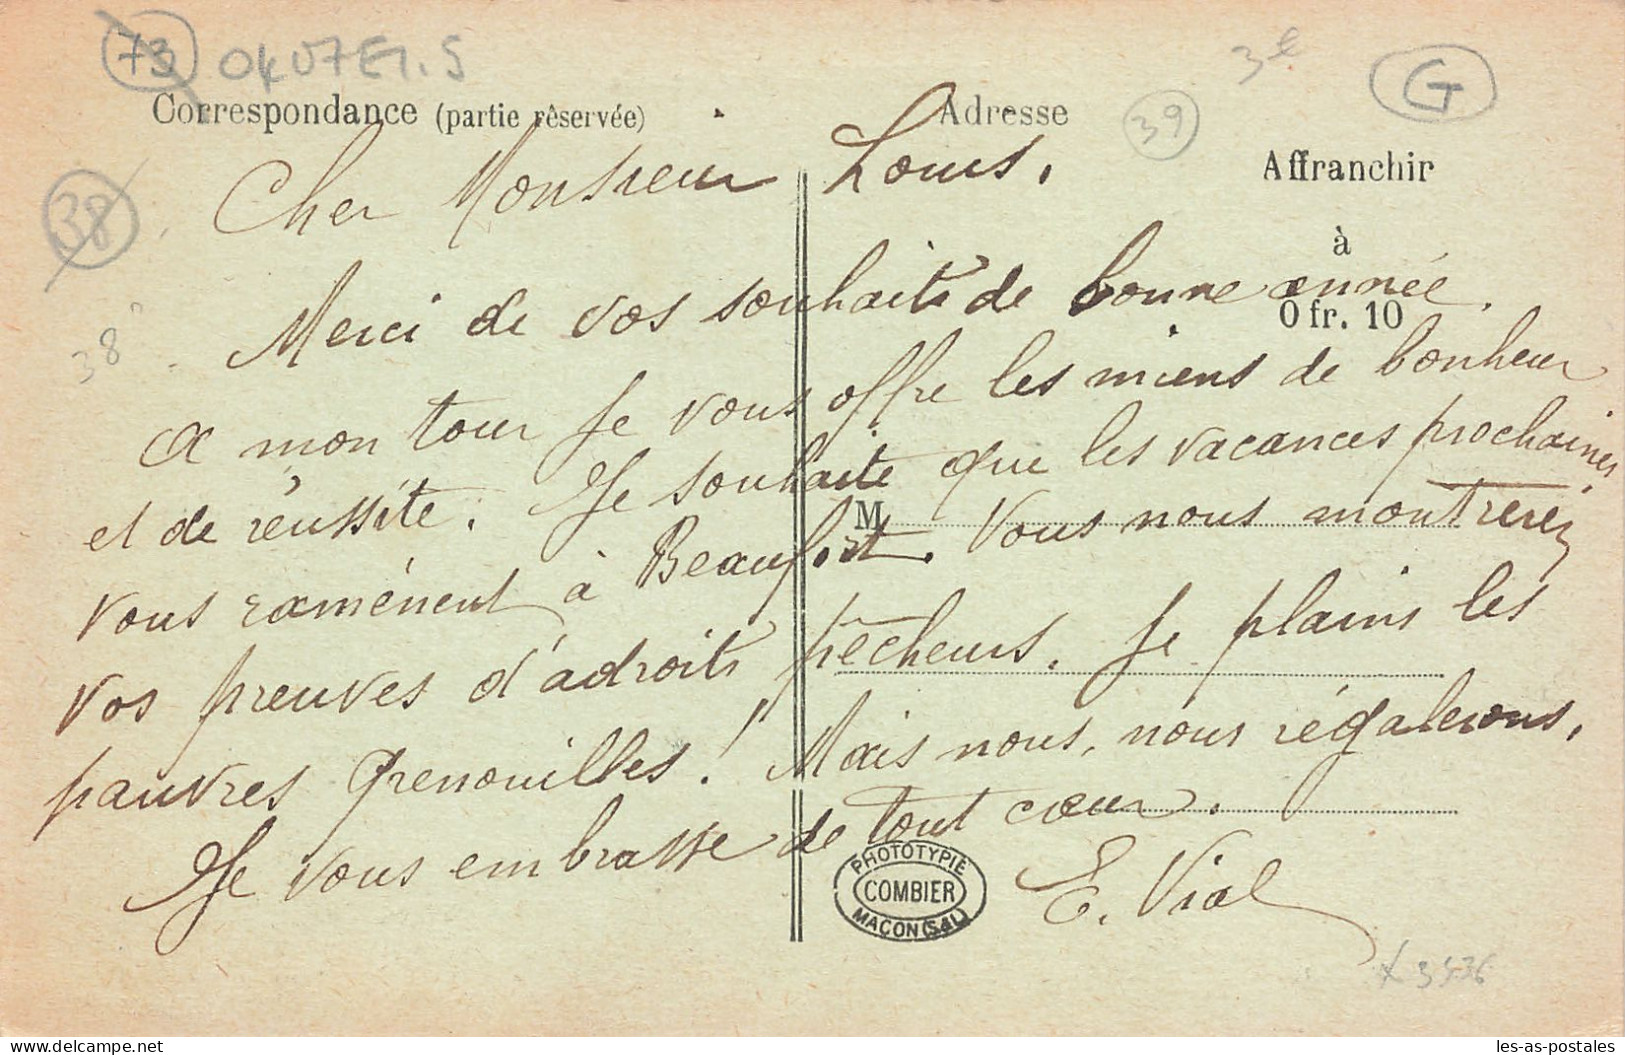 73 04 07 E1.S
3€
G
Correspondance (partie réservée)
Adresse
39
Affranchir
à
0 fr. 10
38
38
Cher Monsieur Louis.
Merci de vos souhaits de bonne année.
A mon tour je vous offre les miens de bonheur
et de réussite. Je souhaite que les vacances prochaines
vous ramènent à Beaufort. Vous nous montrerez
M
vos preuves d'adroits pêcheurs. Je plains les
pauvres grenouilles! Mais nous, nous régalerons.
Je vous embrasse de tout cœur.
E. Vial
PHOTOTYPIE
COMBIER
MACON (S&L)
les-as-postales
www.delcampe.net